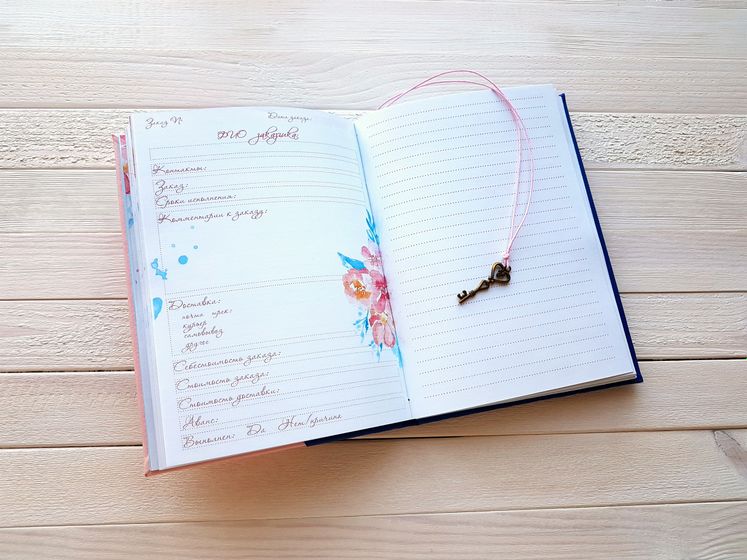 Заказ № Дата заказа:
ФИО заказчика:
Контакты:
Заказ:
Сроки исполнения:
Комментарии к заказу:
Доставка:
почта трек:
курьер
самовывоз
другое
Себестоимость заказа:
Стоимость заказа:
Стоимость доставки:
Аванс:
Выполнен: Да Нет/причина